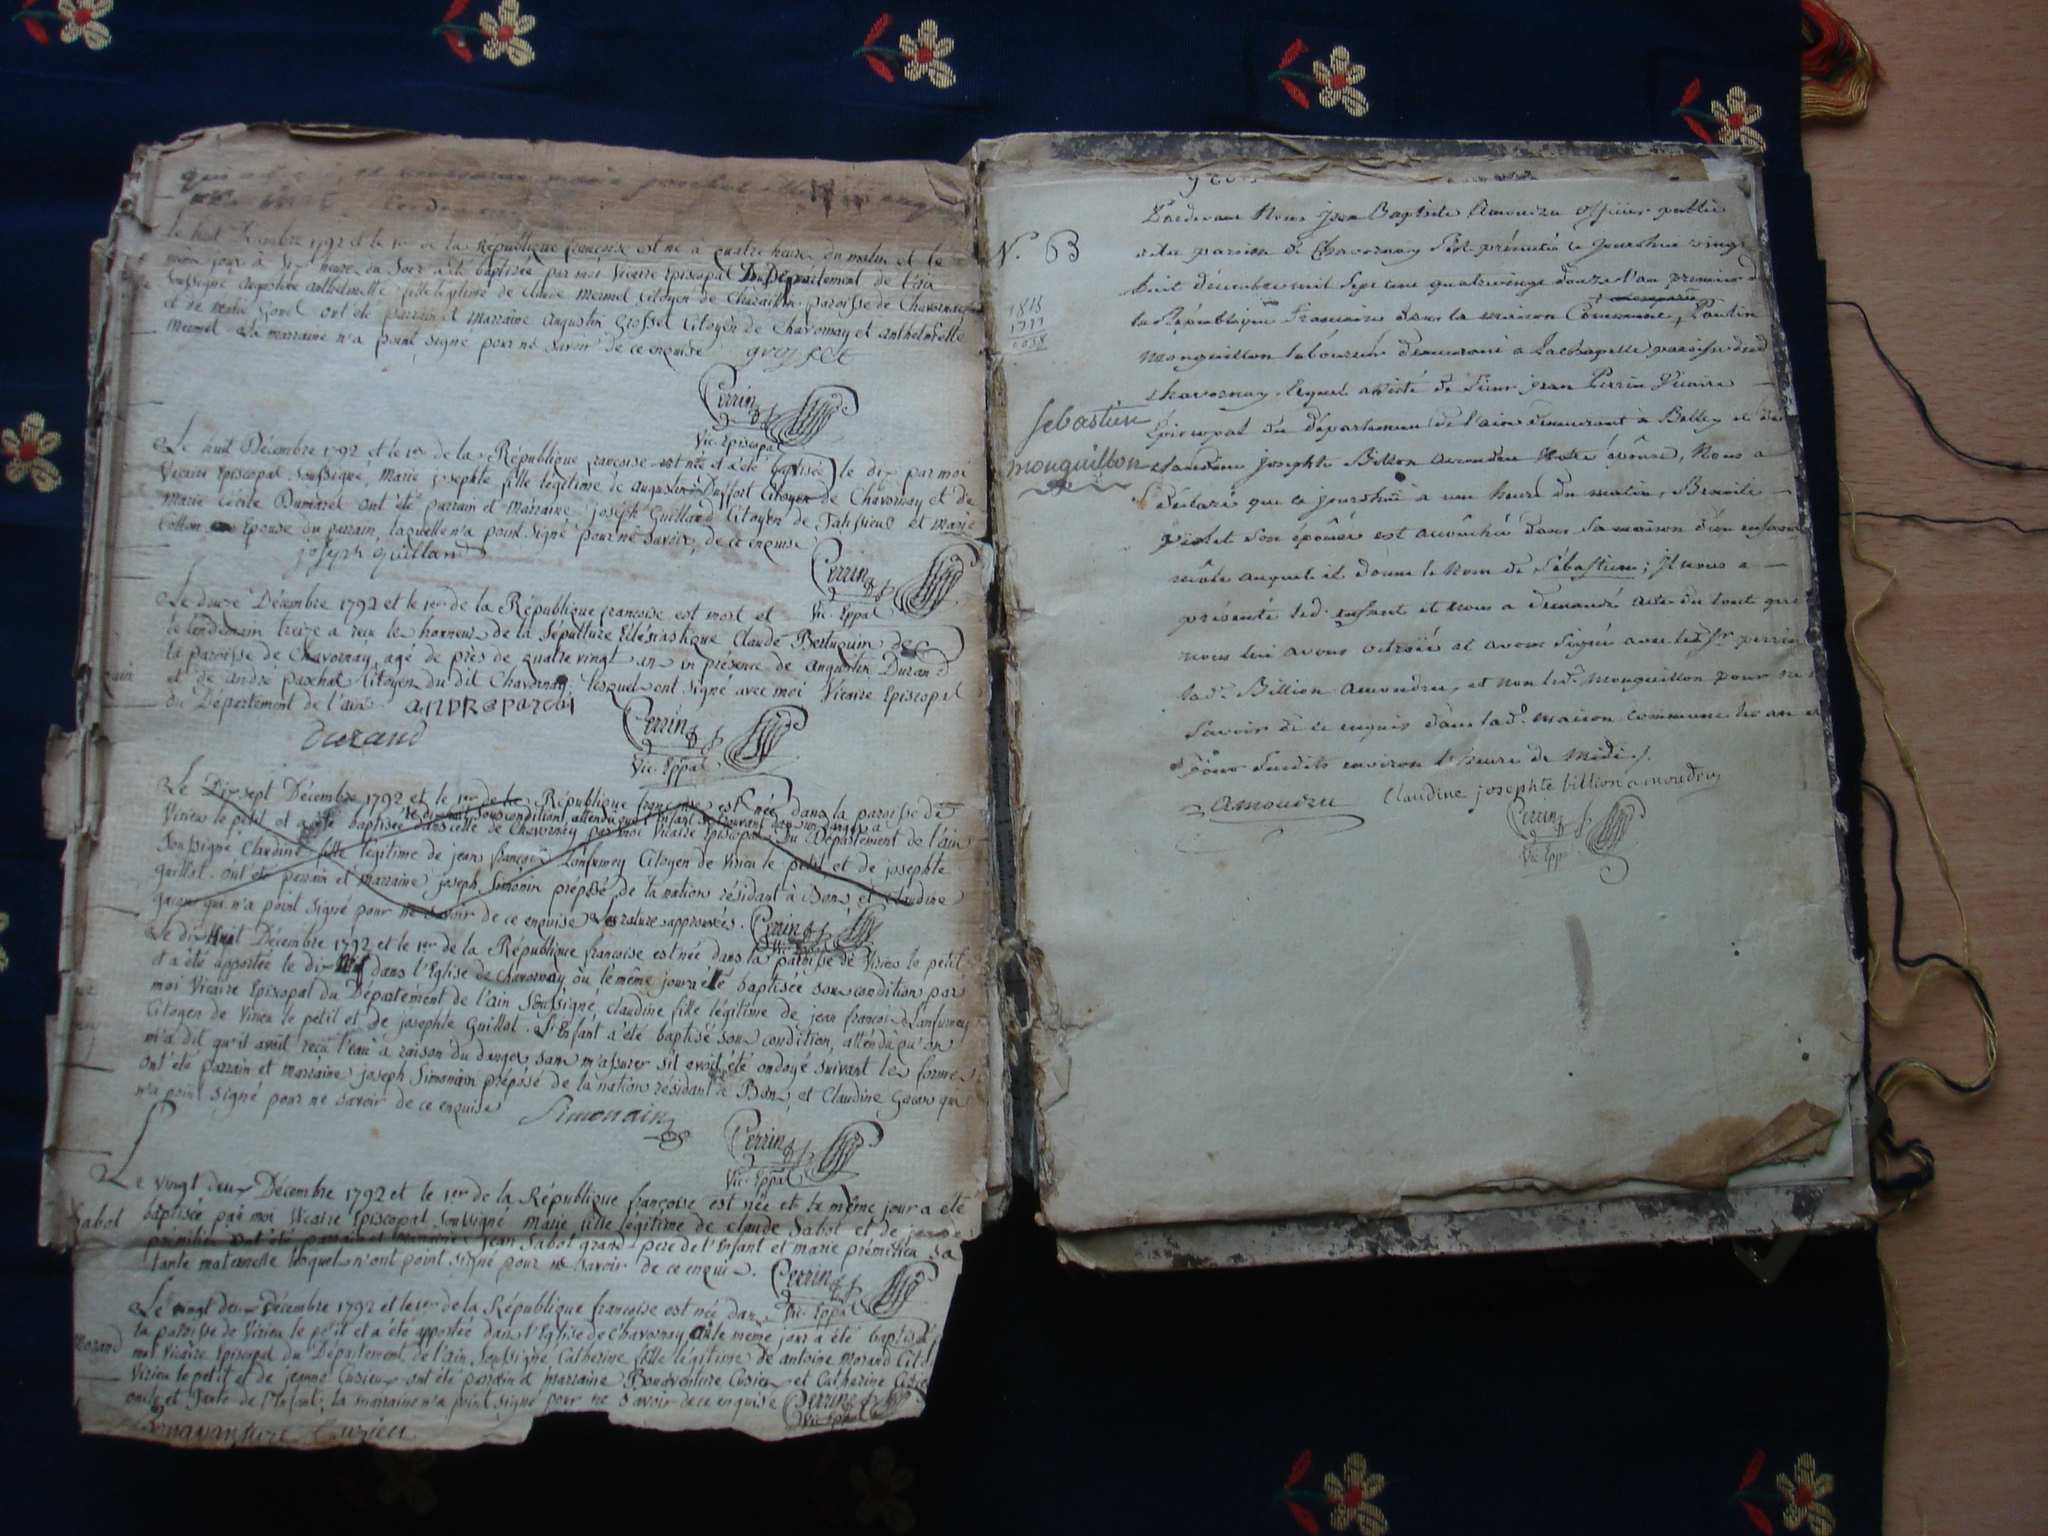 Le huit Décembre 1792 et le 1er de la République françoise est né a quatre heure du matin et le
même jour à six heure du soir a été baptisée par moi Vicaire Episcopal Du Département de l'ain
Soussigné Augustine anthelmette fille légitime de Claude Mermet Citoyen de paroisse de Chavornay
et de ont été parrain et Marraine Augustin Grosset Citoyen de Chavornay et anthelmette
Mermet La marraine n'a point signé pour ne savoir de ce enquise grosset
Perrin
Vic. Episcopal
Le huit Décembre 1792 et le 1er de la République françoise est née et a été baptisée le dix par moi
Vicaire Episcopal Soussigné, Marie josephte fille légitime de augustin Duffort Citoyen de Chavornay et de
Marie Cécile Dumarest ont été parrain et Marraine joseph Guillard Citoyen de Talissieu et Marie
Cotton Epouse du parrain, laquelle n'a point signé pour ne savoir, de ce enquise
joseph guillard
Perrin
Vic. Eppal
Le douze Décembre 1792 et le 1er de la République françoise est mort et
le lendemain treize a reçu les honneurs de la Sépulture Eclésiastique Claude Berthuin de
la paroisse de Chavornay, agé de près de quatre vingt an en présence de augustin Durand
et de andré parchet Citoyen du dit Chavornay, lesquels ont signé avec moi Vicaire Episcopal
du Département de l'ain ANDRE parchet
Durand
Perrin
Vic. Eppal
Le Dix sept Décembre 1792 et le 1er de la République françoise est née dans la paroisse de
Virieu le petit et a été baptisée dans celle de Chavornay par moi Vicaire Episcopal Du Département de l'ain
Soussigné Claudine fille légitime de jean françois Lanfumey Citoyen de Virieu le petit et de josephte
guillot. ont été parrain et marraine joseph Simonin préposé de la nation résidant à Bons et Claudine
gacon qui n'a point signé pour ne savoir de ce enquise ratures approuvées. Perrin
Le dix huit Décembre 1792 et le 1er de la République françoise est née dans la paroisse de Virieu le petit
et a été apportée le dix neuf dans l'Eglise de Chavornay où le même jour a été baptisée sous condition par
moi Vicaire Episcopal du Département de l'ain Soussigné, claudine fille légitime de jean francois Lanfumey
Citoyen de Virieu le petit et de josephte Guillot. L'Enfant a été baptisé sous condition, attendu qu'on
m'a dit qu'il avoit reçu l'eau a raison du danger sans m'assurer s'il avoit été ondoyé suivant les formes
ont été parrain et marraine joseph Simonain préposé de la nation résidant à Bons et Claudine Gacon qui
n'a point signé pour ne savoir de ce enquise Simonain
Perrin
Vic. Eppal
Sabot
Le vingt deux Décembre 1792 et le 1er de la République françoise est née et le même jour a été
baptisée par moi Vicaire Episcopal Soussigné Marie fille légitime de claude Sabot et de
prémilieu ont été parrain et marraine jean Sabot grand pere de l'Enfant et marie prémilieu sa
tante maternelle lesquels n'ont point signé pour ne savoir de ce enquis. Perrin
Vic. Eppal
Morand
Le vingt deux Décembre 1792 et le 1er de la République françoise est née dans
la paroisse de Virieu le petit et a été apportée dans l'Eglise de Chavornay où le même jour a été baptisé
moi Vicaire Episcopal du Département de l'ain Soussigné Catherine fille légitime de antoine Morand
Virieu le petit et de jeanne Cusieu ont été parrain et marraine Bonaventure Cusieu et Catherine
oncle et Tante de l'Enfant, la marraine n'a point signé pour ne savoir de ce enquise Perrin
Vic. Eppal
Bonavanture Cuzieu
Pardevant Nous jean Baptiste Amoudru officier public
N. B
de la paroisse de Chavornay s'est présenté ce jourdhui vingt
huit décembre mil sept cent quatrevingt douze l'an premier de
la République francaise dans la maison Commune, Pantin
1815
1777
0038
Monguillon laboureur demeurant à Lachapelle paroisse dud
Chavornay lequel assisté de Sieur jean Perrin Vicaire
Sebastien
monguillon
Episcopal du département de l'ain demeurant à Belley et de
claudine josephte Billion amoudru Notre épouse, Nous a
déclaré que ce jourdhui à une heure du matin,
son épouse est accouchée dans sa maison d'un enfant
mâle auquel il donne le nom de Sébastien; il nous a
présenté led. enfant et nous a demandé acte du tout que
nous lui avons octroié et avons signé avec led. Sr perrin
lad. Billion amoudru, et non led. monguillon pour ne
savoir de ce enquis dans lad. maison commune les an et
jour susdits environ l'heure de midi.
Amoudru Claudine josephte billion amoudru
Perrin
Vic. Epp